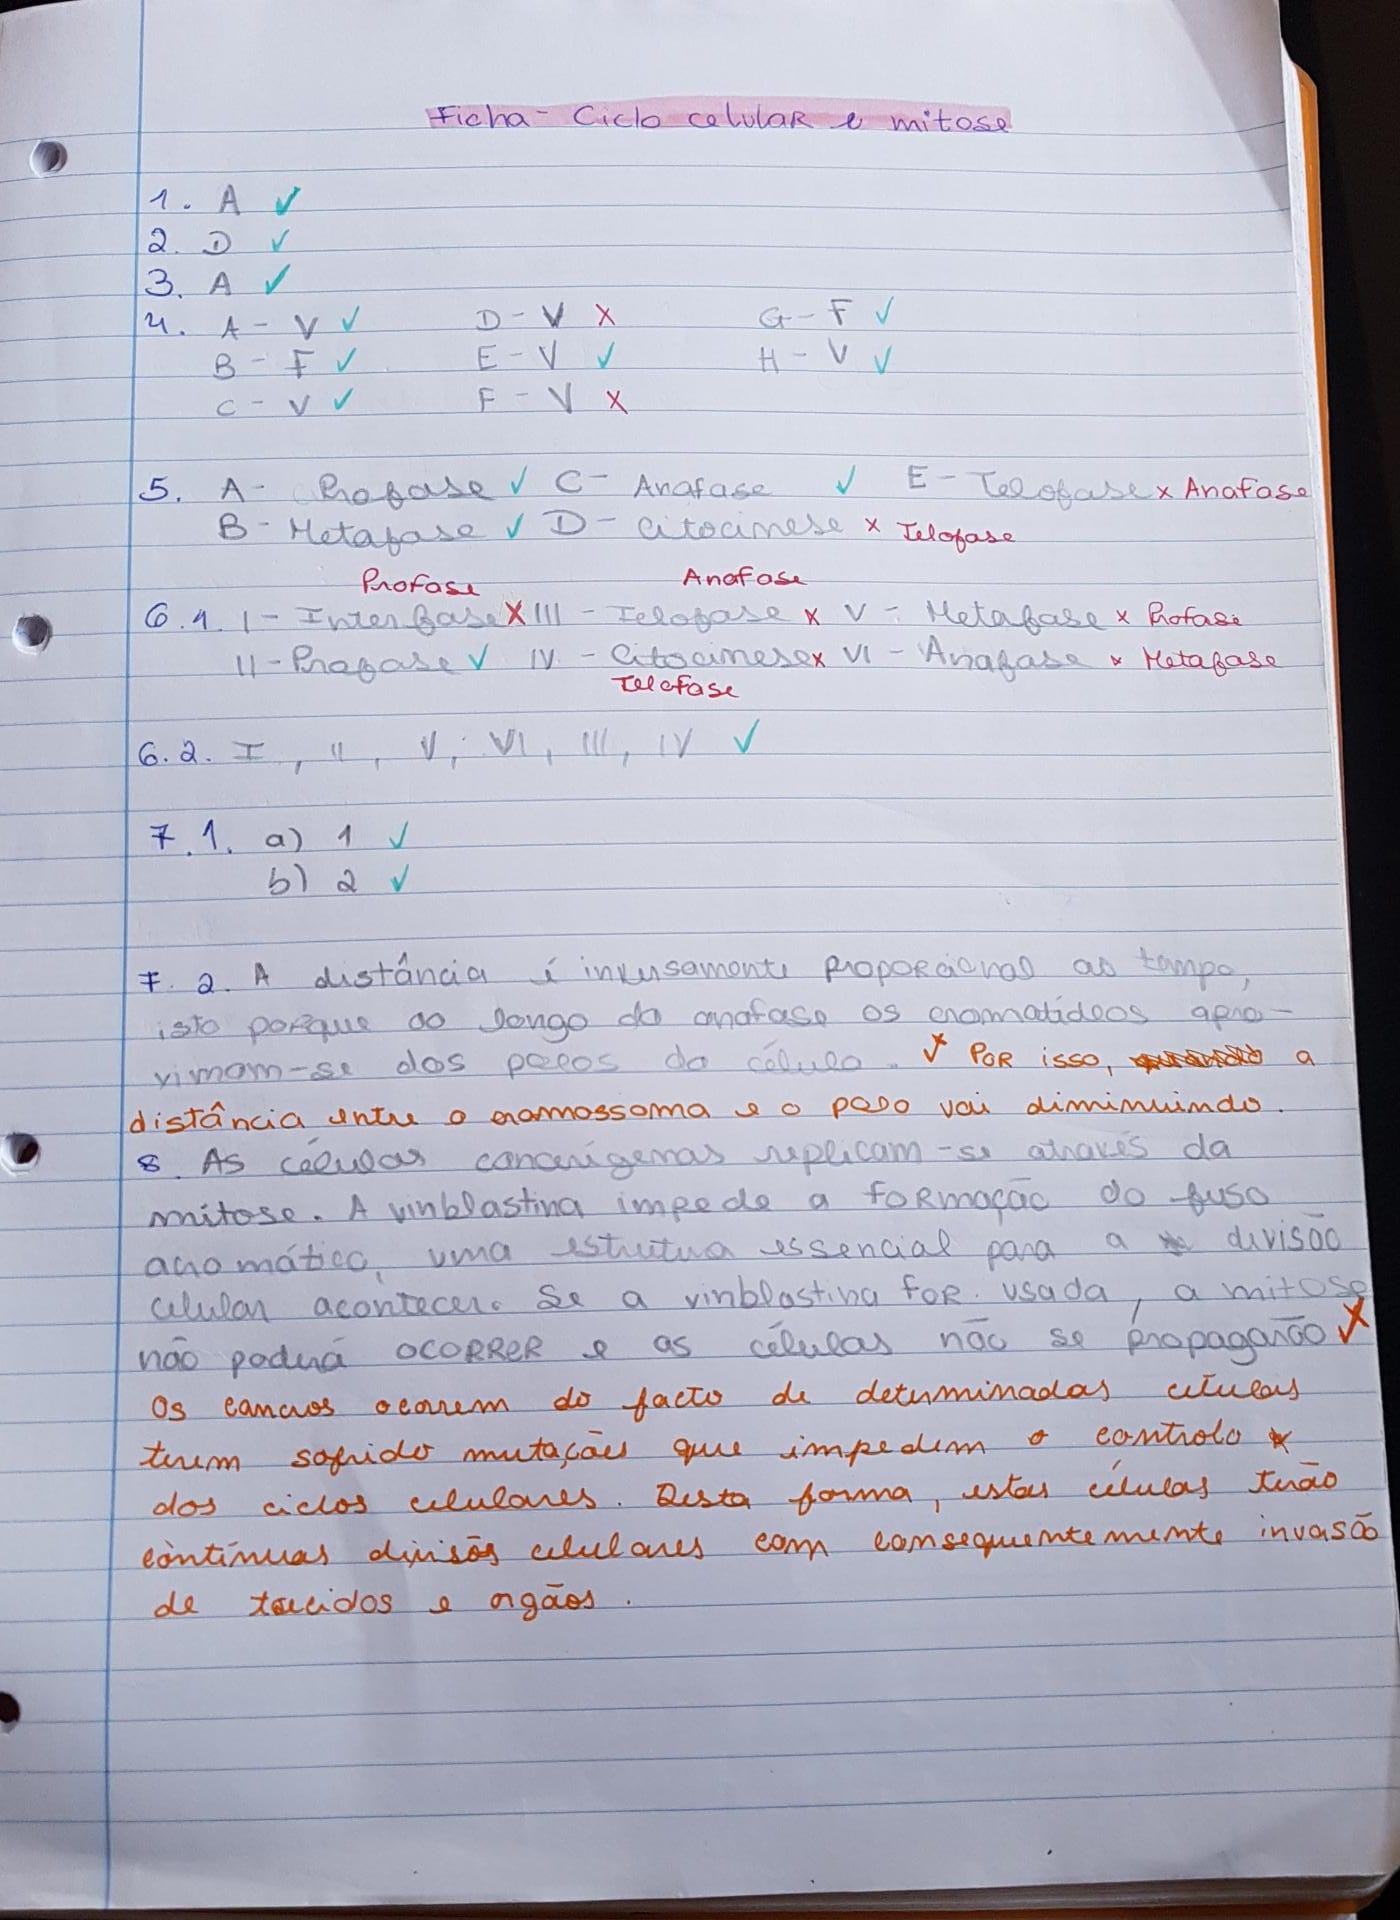 Ficha - Ciclo celular e mitose
1. A ✓
2. D ✓
3. A ✓
4. A - V ✓ D - V x G - F ✓
B - F ✓ E - V ✓ H - V ✓
C - V ✓ F - V x
5. A - Profase ✓ C - Anafase ✓ E - Telofase x Anafase
B - Metafase ✓ D - citocinese x Telofase
Profase Anafase
6.1. I - Interfase x III - Telofase x V - Metafase x Profase
II - Profase ✓ IV - Citocinese x VI - Anafase x Metafase
Telofase
6.2. I, II, V, VI, III, IV ✓
7.1. a) 1 ✓
b) 2 ✓
7.2. A distância é inversamente proporcional ao tempo,
isto porque ao longo da anafase os cromatídeos apro-
vimam-se dos polos da célula. ✓ Por isso, a
distância entre o cromossoma e o polo vai diminuindo.
8. As células cancerígenas replicam-se através da
mitose. A vinblastina impede a formação do fuso
acromático, uma estrutura essencial para a divisão
celular acontecer. Se a vinblastina for usada, a mitose
não poderá ocorrer e as células não se propagarão
Os cancros ocorrem do facto de determinadas células
terem sofrido mutações que impedem o controlo
dos ciclos celulares. Desta forma, estas células terão
contínuas divisões celulares com consequentemente invasão
de tecidos e orgãos.